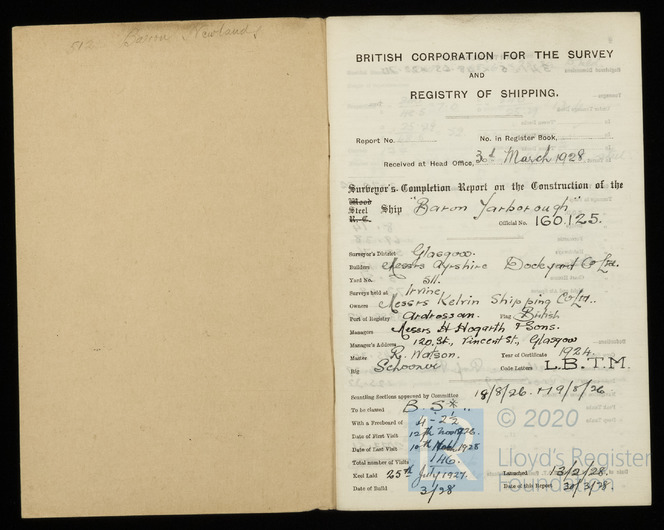 512 Baron Newlands
BRITISH CORPORATION FOR THE SURVEY
AND
REGISTRY OF SHIPPING.
Report No. No. in Register Book,
Received at Head Office, 30th March 1928
Surveyor's Completion Report on the Construction of the
Wood
Steel Ship "Baron Yarborough"
R. C.
Official No. 160.125.
Surveyor's District Glasgow.
Builders Messrs Ayrshire Dockyard Co Ltd.
Yard No. 511.
Surveys held at Irvine,
Owners Messrs Kelvin Shipping Co Ltd..
Port of Registry Ardrossan. Flag British
Managers Messrs H. Hogarth & Sons.
Manager's Address 120, St., Vincent St., Glasgow
Master R. Watson. Year of Certificate 1924.
Rig Schooner Code Letters L.B.T.M.
Scantling Sections approved by Committee 18/8/26. 19/8/26
To be classed B.S*
With a Freeboard of 4-2½
Date of First Visit 12th Nov 1926.
Date of Last Visit 10th Mch 1928
Total number of Visits 146.
Keel Laid 25th July 1927. Launched 13/2/28.
Date of Build 3/28 Date of this Report 30/3/28.
© 2020
Lloyd's Register
Foundation